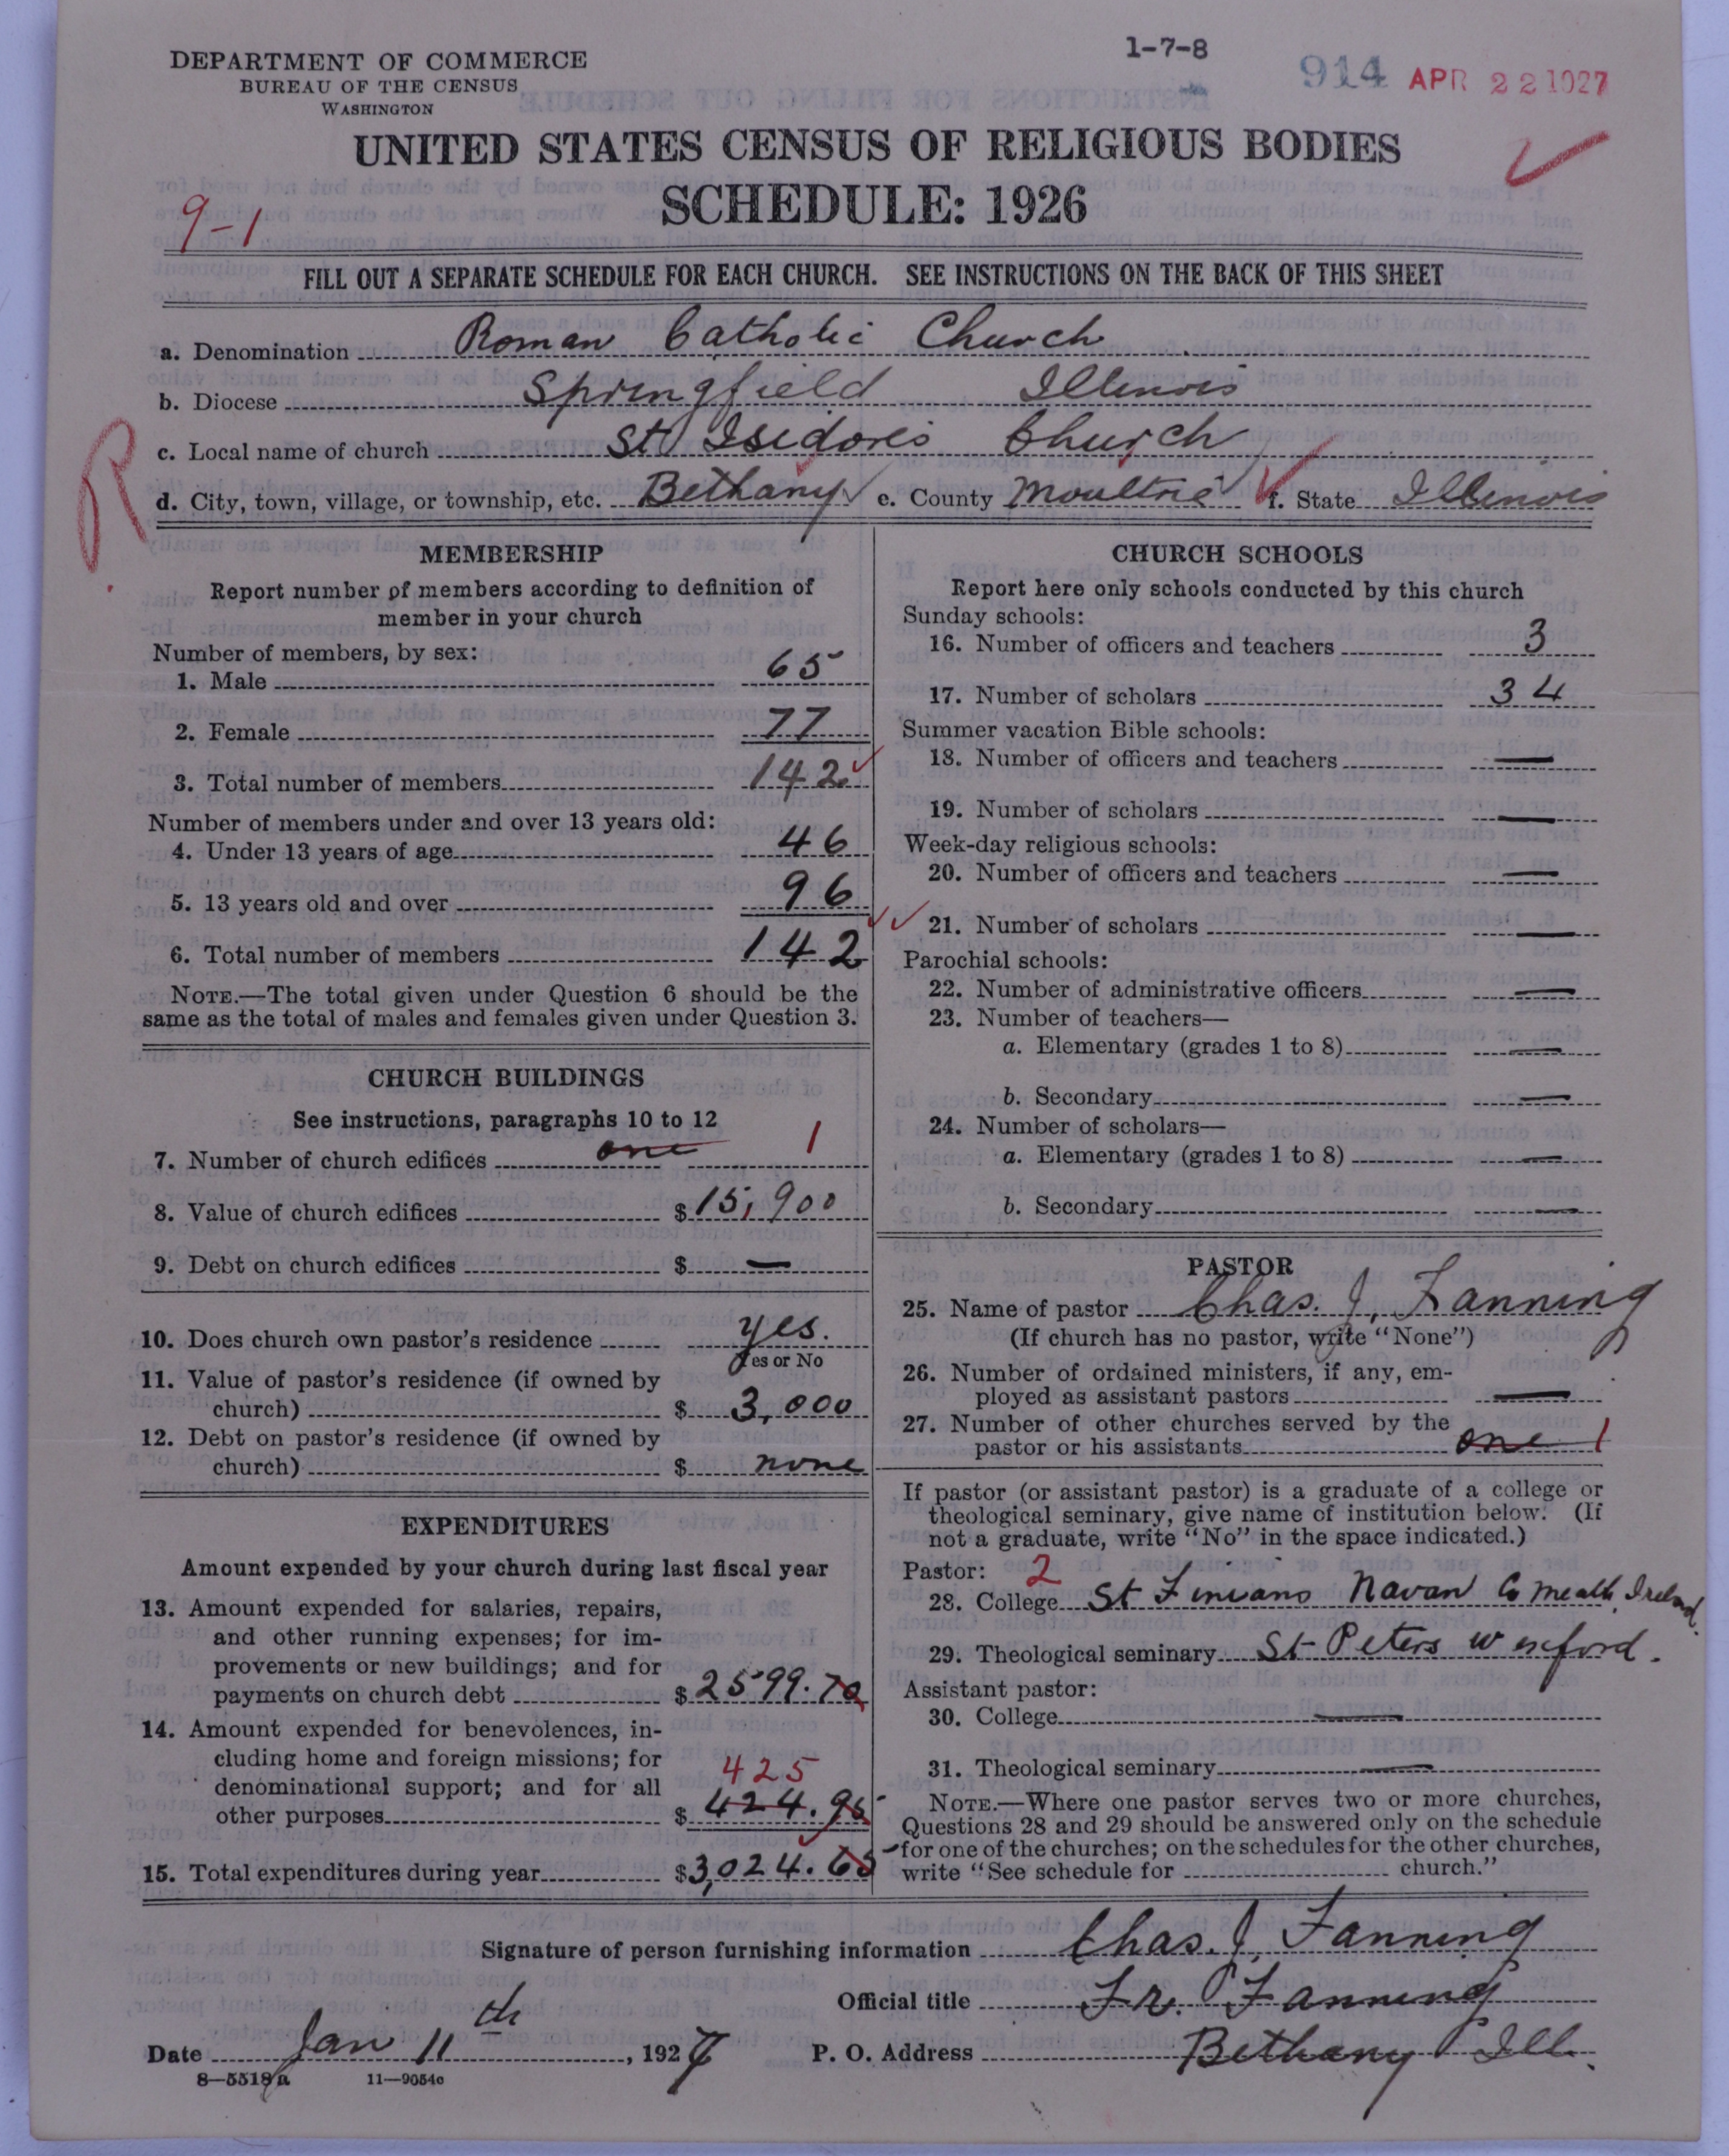 DEPARTMENT OF COMMERCE
BUREAU OF THE CENSUS
WASHINGTON
1-7-8
914 APR 22 1927
UNITED STATES CENSUS OF RELIGIOUS BODIES
SCHEDULE: 1926
9-1
FILL OUT A SEPARATE SCHEDULE FOR EACH CHURCH. SEE INSTRUCTIONS ON THE BACK OF THIS SHEET
a. Denomination Roman Catholic Church
b. Diocese Springfield Illinois
c. Local name of church St Isidores Church
R
d. City, town, village, or township, etc. Bethany e. County Moultrie f. State Illinois
MEMBERSHIP
Report number of members according to definition of
member in your church
Number of members, by sex:
1. Male 65
2. Female 77
3. Total number of members 142
Number of members under and over 13 years old:
4. Under 13 years of age 46
5. 13 years old and over 96
6. Total number of members 142
NOTE.—The total given under Question 6 should be the
same as the total of males and females given under Question 3.
CHURCH BUILDINGS
See instructions, paragraphs 10 to 12
7. Number of church edifices one 1
8. Value of church edifices $15,900
9. Debt on church edifices $ —
10. Does church own pastor's residence yes.
Yes or No
11. Value of pastor's residence (if owned by
church) $ 3,000
12. Debt on pastor's residence (if owned by
church) $ none
EXPENDITURES
Amount expended by your church during last fiscal year
13. Amount expended for salaries, repairs,
and other running expenses; for im-
provements or new buildings; and for
payments on church debt $2599.70
14. Amount expended for benevolences, in-
cluding home and foreign missions; for
denominational support; and for all
425
other purposes $ 424.95
15. Total expenditures during year $3,024.65
CHURCH SCHOOLS
Report here only schools conducted by this church
Sunday schools:
16. Number of officers and teachers 3
17. Number of scholars 34
Summer vacation Bible schools:
18. Number of officers and teachers —
19. Number of scholars —
Week-day religious schools:
20. Number of officers and teachers —
21. Number of scholars —
Parochial schools:
22. Number of administrative officers —
23. Number of teachers—
a. Elementary (grades 1 to 8) —
b. Secondary —
24. Number of scholars—
a. Elementary (grades 1 to 8) —
b. Secondary —
PASTOR
25. Name of pastor Chas. J. Fanning
(If church has no pastor, write "None")
26. Number of ordained ministers, if any, em-
ployed as assistant pastors —
27. Number of other churches served by the
pastor or his assistants one 1
If pastor (or assistant pastor) is a graduate of a college or
theological seminary, give name of institution below. (If
not a graduate, write "No" in the space indicated.)
Pastor: 2
28. College St Finians Navan Co Meath Ireland.
29. Theological seminary St Peters Wexford.
Assistant pastor:
30. College —
31. Theological seminary —
NOTE.—Where one pastor serves two or more churches,
Questions 28 and 29 should be answered only on the schedule
for one of the churches; on the schedules for the other churches,
write "See schedule for church."
Signature of person furnishing information Chas. J. Fanning
Official title Fr. Fanning
Date Jan 11th, 1927 P. O. Address Bethany Ill.
8—5518a 11—9054c